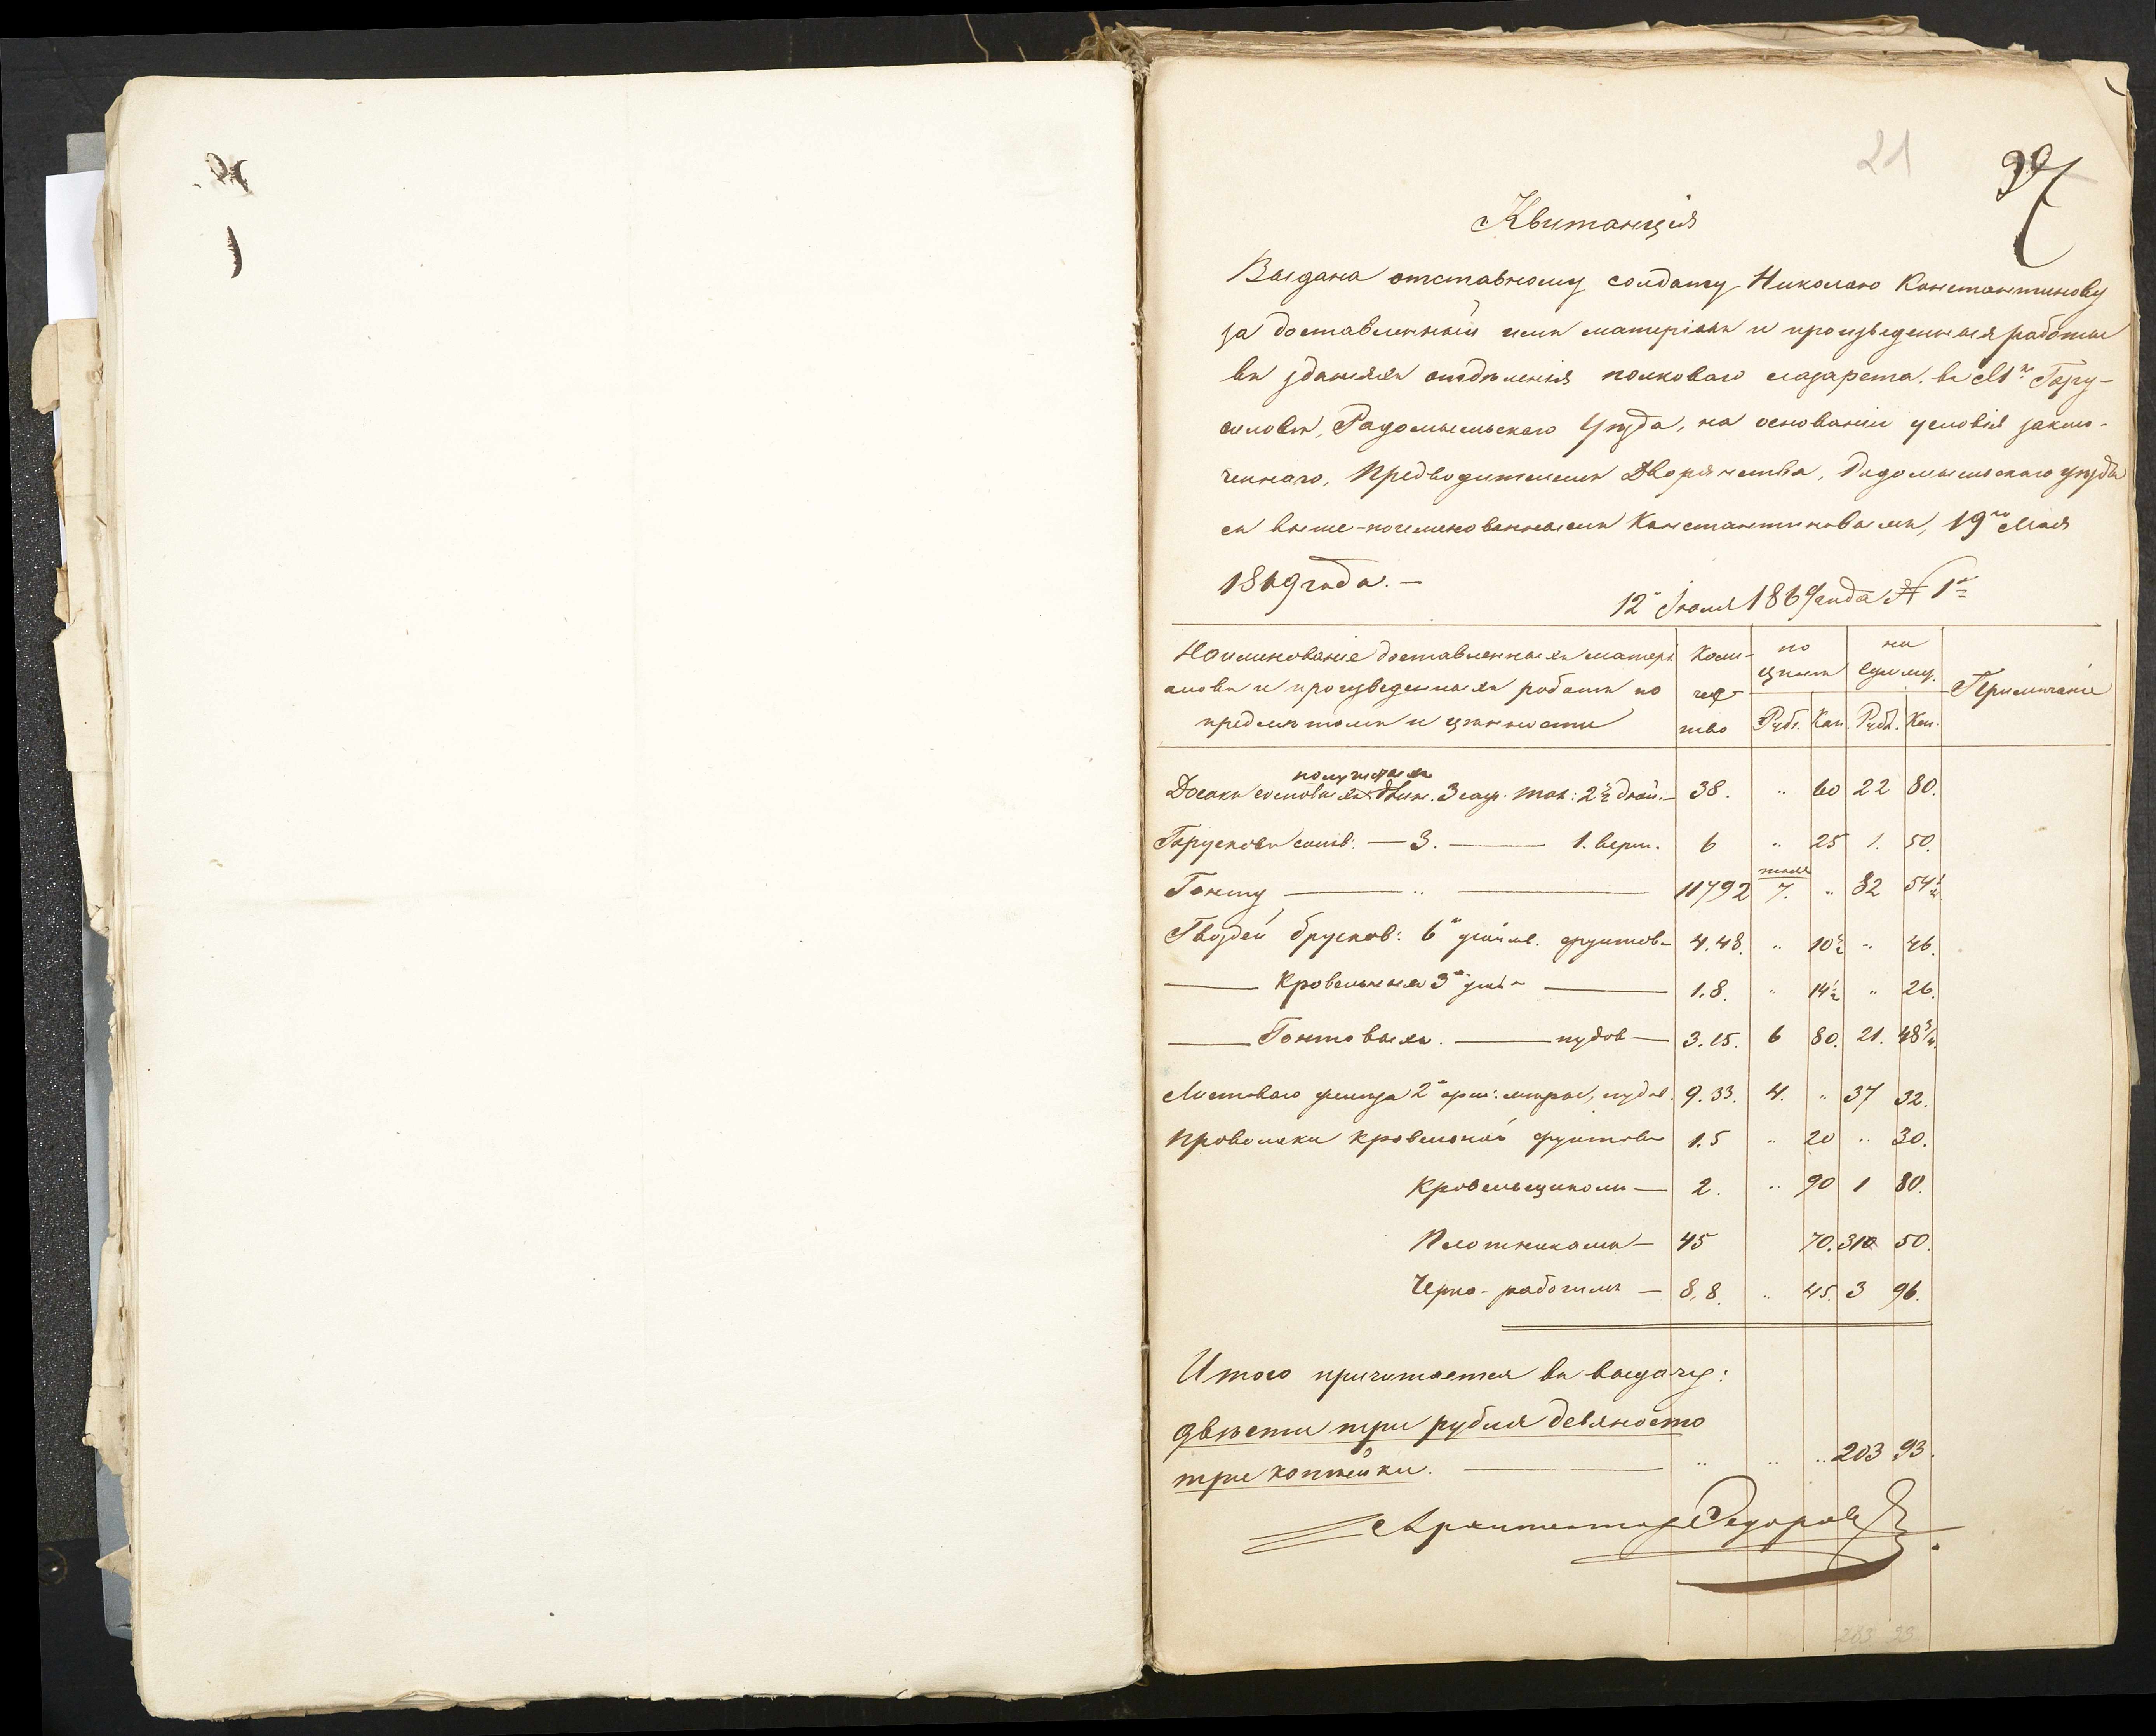 21
37
Квитанція
Выдана отставному солдату Николаю Константинову
за доставленный имъ матеріалъ и произведенныя работы
въ зданіяхъ отдѣленія полковаго лазарета въ М.
Радомысльскаго Уѣзда, на основаніи условія заклю-
ченнаго, Предводителемъ Дворянства, Радомысльскаго уѣзда
съ выше-поименованнымъ Константиновымъ, 19го Мая
1869 года. —
12 Іюля 1869 года № 1й
Наименованіе доставленныхъ матері
аловъ и произведенныхъ работъ по
предметамъ и цѣнности
Коли-
чес-
тво
по
цѣнѣ
Руб. Коп.
на
сумму.
Руб. Коп.
Примѣчаніе
получистыхъ
Досокъ сосновыхъ длин. 3 саж. тол: 2½ дюй. — 38. „ 60 22 80.
Брусковъ соснов: — 3. — 1. верш. 6 „ 25 1. 50.
тысяч.
Гонту — „ — 11792 7. „ 82 54½
Гвоздей брусков: 6 дюйм. фунтов — 4.48. „ 10½ „ 46.
— Кровельныхъ 3 дюй — 1.8. „ 14½ „ 26.
— Гонтовыхъ. — пудов — 3.15. 6 80. 21. 48¾.
Листоваго желѣза 2 арш: мѣры, пудов. 9.33. 4. „ 37 32.
Проволоки кровельной фунтовъ 1.5 „ 20 „ 30.
Кровельщиком — 2. „ 90 1 80.
Плотниками — 45 70. 31 50.
Черно-рабочими — 8,8. „ 45. 3 96.
Итого причитается въ выдачу:
двѣсти три рубля девяносто
три копѣйки. — „ „ „ 203 93.
Архитекторъ Федоровъ
203 93